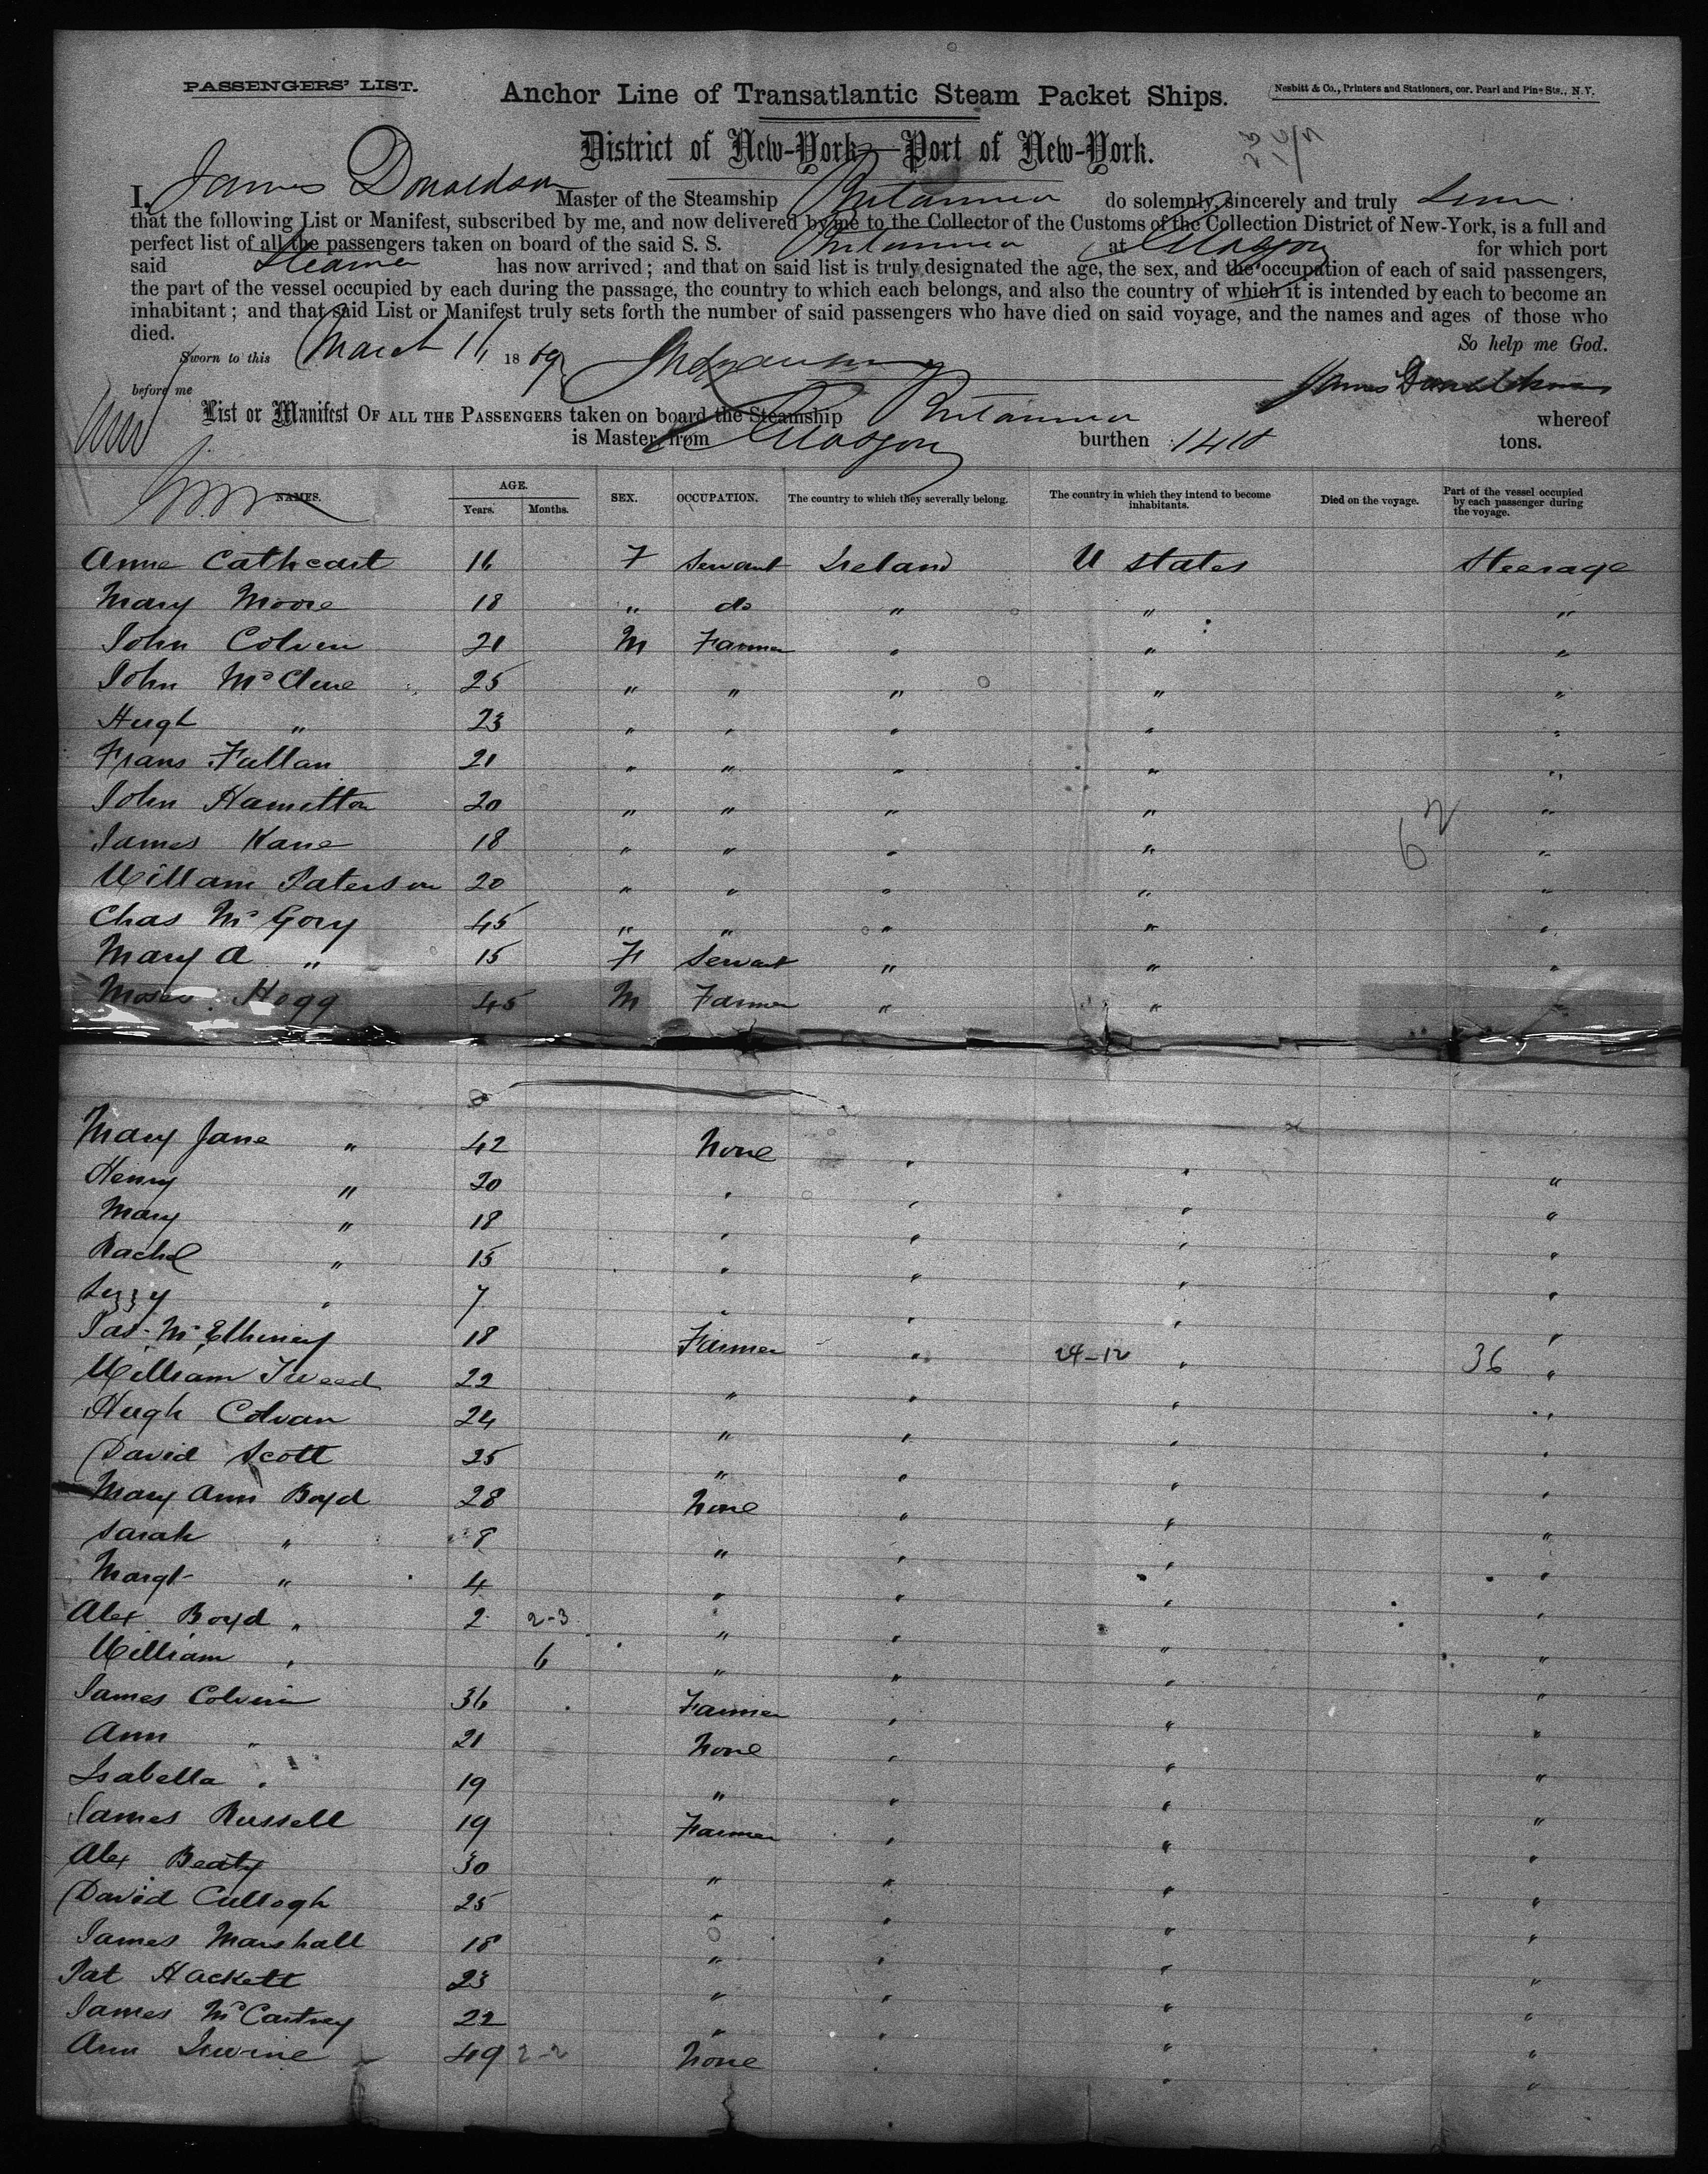 PASSENGERS' LIST.
Anchor Line of Transatlantic Steam Packet Ships.
Nesbitt & Co., Printers and Stationers, cor. Pearl and Pine Sts., N.Y.
District of New-York—Port of New-York.
I, James Donaldson Master of the Steamship Britannia do solemnly, sincerely and truly
that the following List or Manifest, subscribed by me, and now delivered by me to the Collector of the Customs of the Collection District of New-York, is a full and
perfect list of all the passengers taken on board of the said S. S. Britannia at Glasgow for which port
said Steamer has now arrived; and that on said list is truly designated the age, the sex, and the occupation of each of said passengers,
the part of the vessel occupied by each during the passage, the country to which each belongs, and also the country of which it is intended by each to become an
inhabitant; and that said List or Manifest truly sets forth the number of said passengers who have died on said voyage, and the names and ages of those who
died. So help me God.
Sworn to this March 11 1869
before me James Donaldson
List or Manifest OF ALL THE PASSENGERS taken on board the Steamship Britannia whereof
is Master, from Glasgow burthen 1410 tons.
NAMES. AGE. Years. Months. SEX. OCCUPATION. The country to which they severally belong. The country in which they intend to become inhabitants. Died on the voyage. Part of the vessel occupied by each passenger during the voyage.
Anne Cathcart 16 F Servant Ireland U States Steerage
Mary Moore 18 " do " " "
John Colvin 21 M Farmer " " "
John McClure 25 " " " " "
Hugh " 23 " " " " "
Frans Fullan 21 " " " " "
John Hamilton 20 " " " " "
James Kane 18 " " " " "
William Paterson 20 " " " " "
Chas McGory 45 " " " " "
Mary A " 15 F Servant " " "
Moses Hogg 45 M Farmer " "
Mary Jane " 42 None " " "
Henry " 20 " " " "
Mary " 18 " " " "
Rachel " 15 " " " "
Lizzy " 7 " " " "
Pat McElhinny 18 Farmer " 24-12 " 36 "
William Tweed 22 " " " "
Hugh Colvan 24 " " " "
David Scott 25 " " " "
Mary Ann Boyd 28 None " " "
Sarah " 8 " " " "
Margt " 4 " " " "
Alex Boyd " 2 2-3 " " " "
William " 6 " " " "
James Colvin 36 Farmer " " "
Ann " 21 None " " "
Isabella " 19 " " " "
James Russell 19 Farmer " " "
Alex Beaty 30 " " " "
David Cullogh 25 " " " "
James Marshall 18 " " " "
Pat Hackett 23 " " " "
James McCartney 22 " " " "
Ann Irwine 49 2-2 None " " "